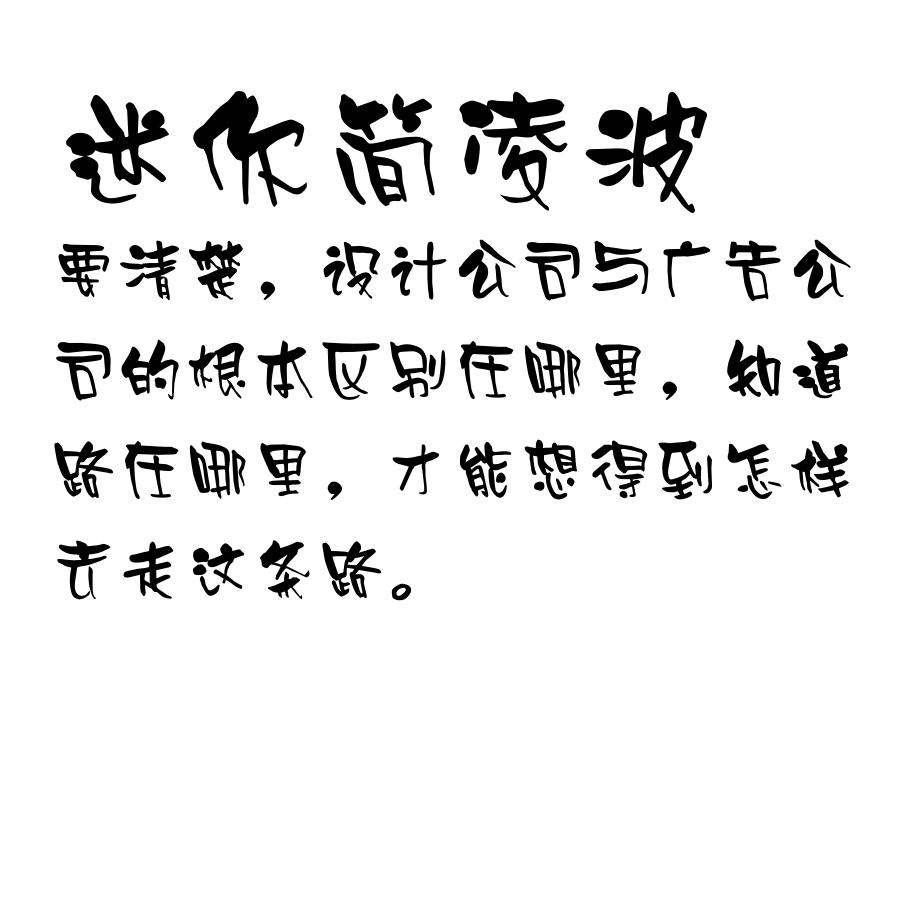 迷你简凌波
要清楚，设计公司与广告公
司的根本区别在哪里，知道
路在哪里，才能想得到怎样
去走这条路。